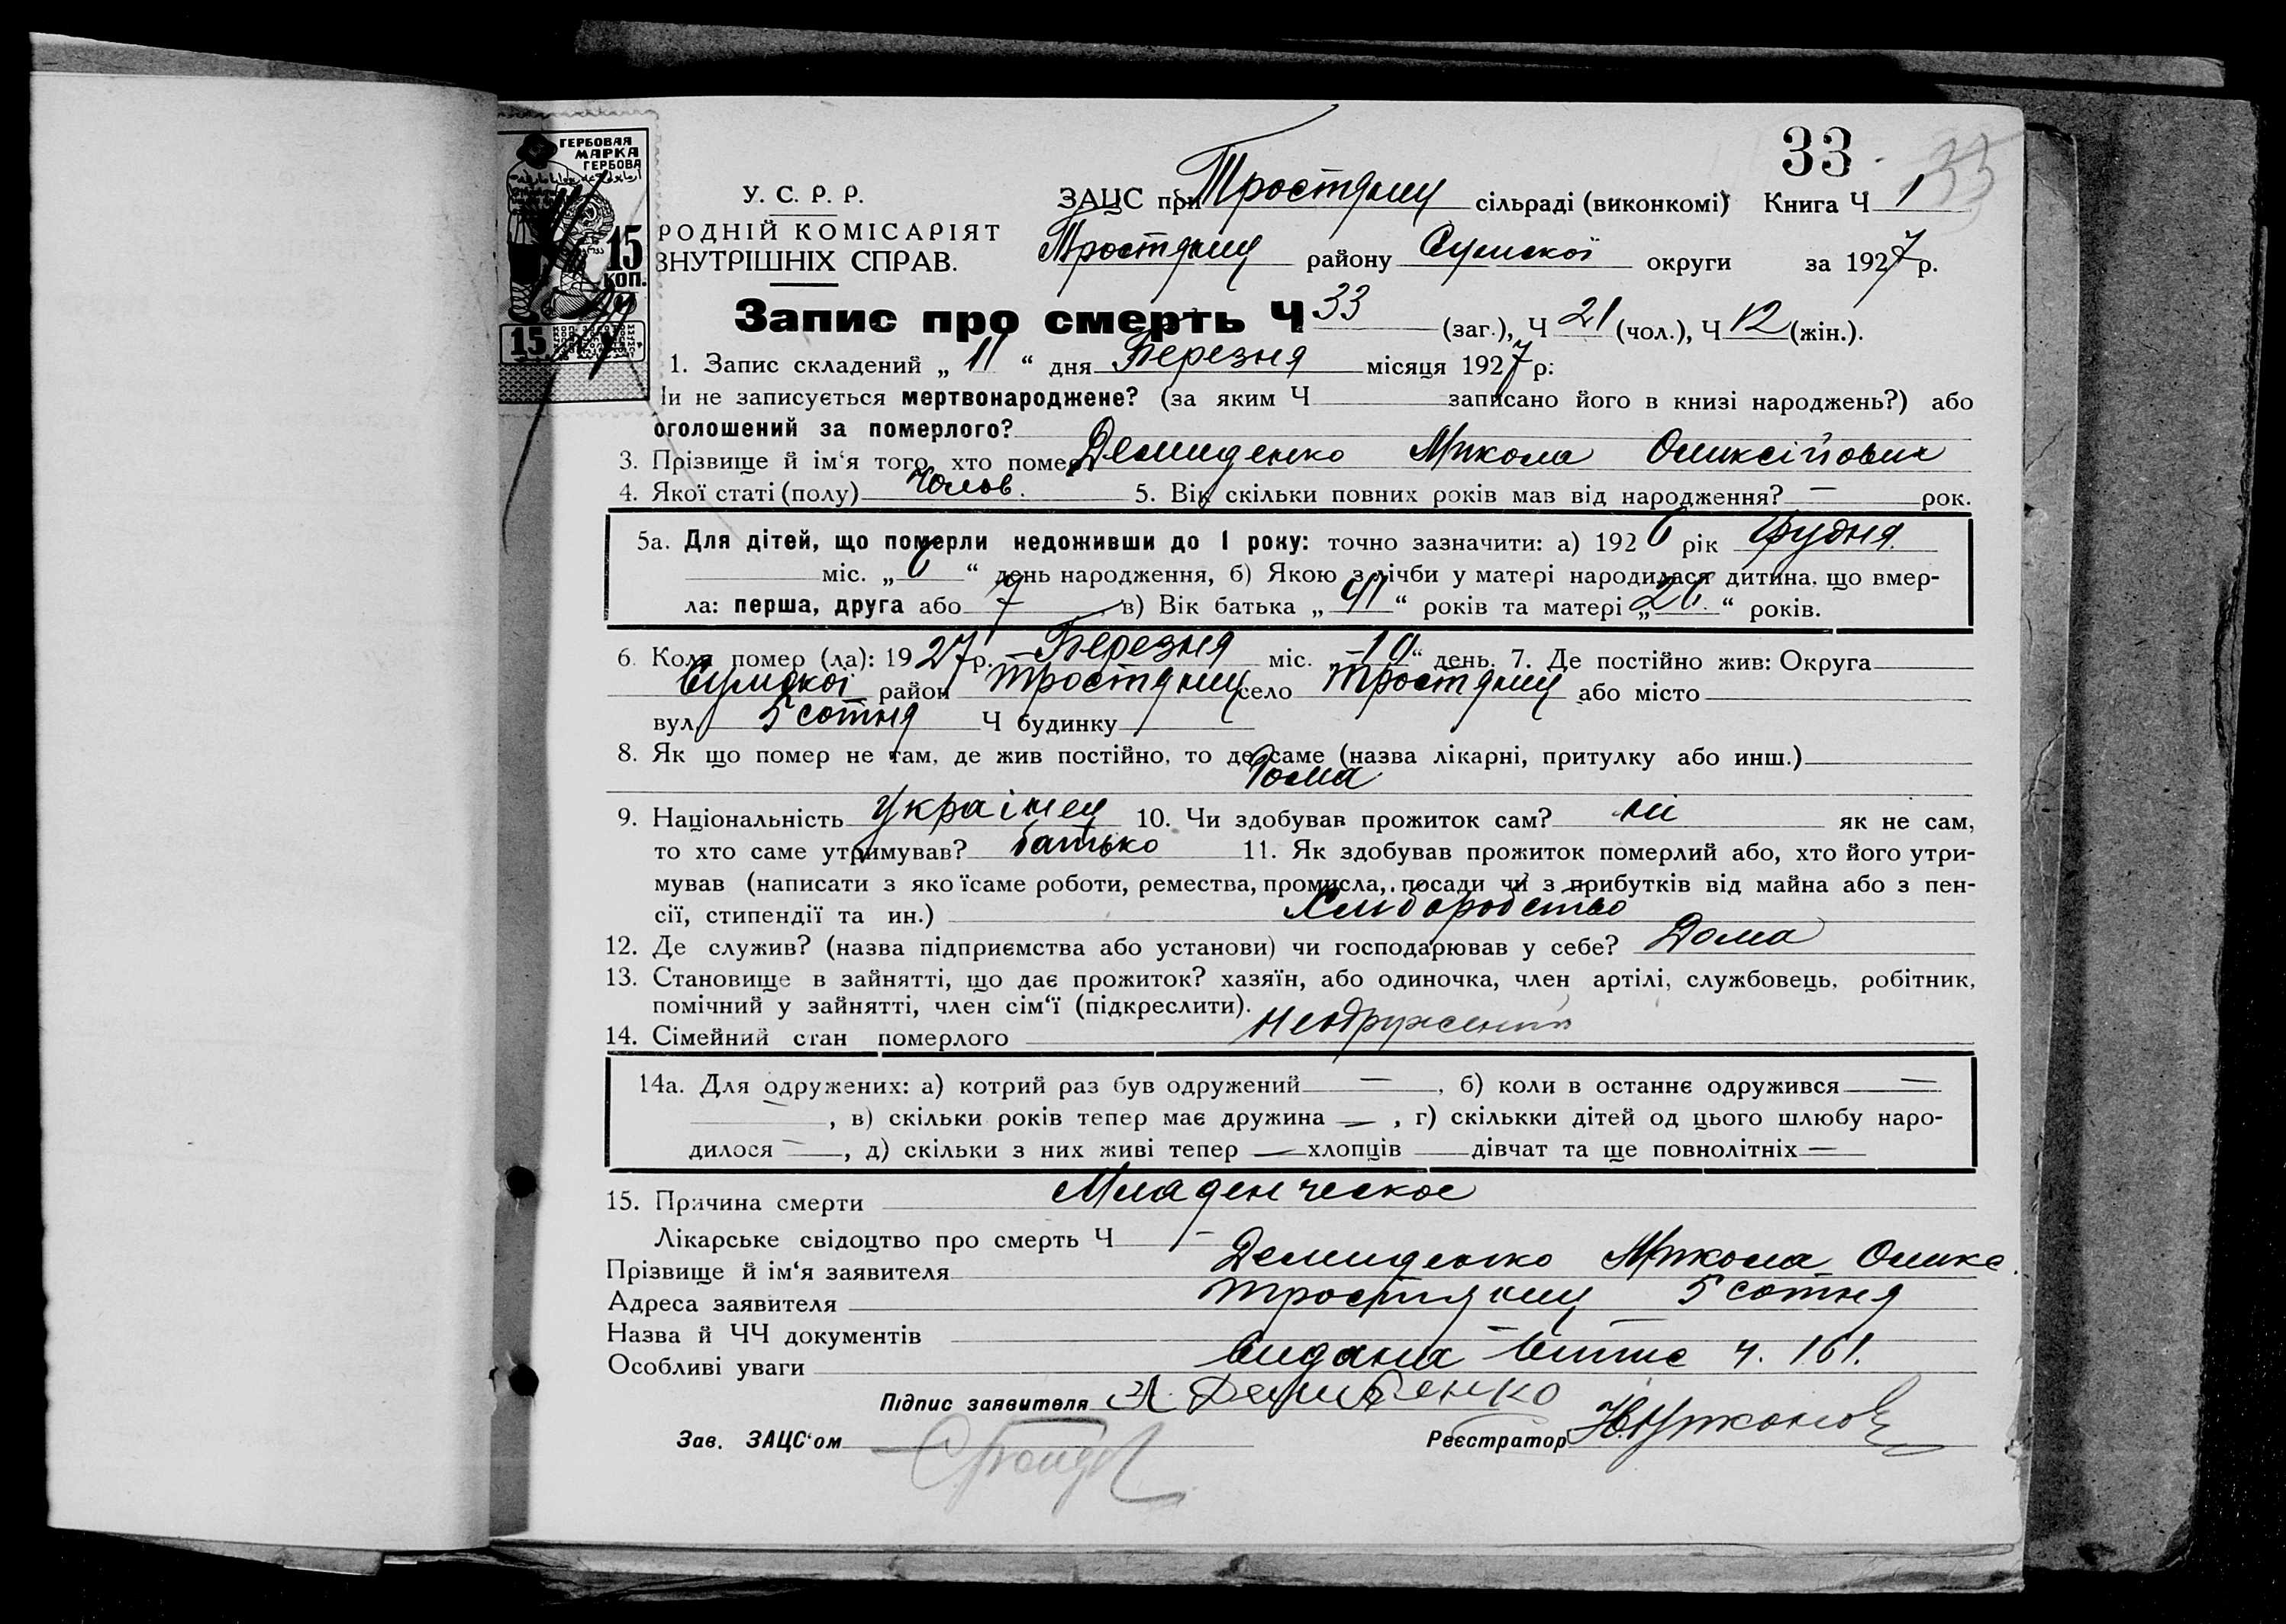 33 33
ГЕРБОВАЯ
МАРКА
ГЕРБОВА
15
КОП.
15
У. С. Р. Р.
РОДНІЙ КОМІСАРІЯТ
ВНУТРІШНІХ СПРАВ.
ЗАЦС при Тростянц сільраді (виконкомі) Книга Ч 1
Тростянц району Сумскої округи за 1927 р.
Запис про смерть Ч 33 (заг.), Ч 21 (чол.), Ч 12 (жін.).
1. Запис складений „ 11 “ дня Березня місяця 1927 р:
и не записується мертвонароджене? (за яким Ч записано його в книзі народжень?) або
оголошений за померлого?
3. Прізвище й ім‘я того, хто помер Демиденко Микола Оликсійович
4. Якої статі (полу) Чолов. 5. Вік скільки повних років мав від народження? — рок.
5а. Для дітей, що померли недоживши до 1 року: точно зазначити: а) 1926 рік Грудня
міс. „ 6 “ день народження, б) Якою з лічби у матері народилася дитина, що вмер-
ла: перша, друга або 7 в) Вік батька „ 41 “ років та матері „ 26 “ років.
6. Коли помер (ла): 1927 р. Березня міс. „ 10 “ день. 7. Де постійно жив: Округа
Сумскої район Тростянц село Тростянц або місто
вул. 5 сотня Ч будинку
8. Як що помер не там, де жив постійно, то де саме (назва лікарні, притулку або инш.)
Дома
9. Національність Українец 10. Чи здобував прожиток сам? ні як не сам,
то хто саме утримував? батько 11. Як здобував прожиток померлий або, хто його утри-
мував (написати з якоїсаме роботи, ремества, промисла, посади чи з прибутків від майна або з пен-
сії, стипендії та ин.) Хлиборобство
12. Де служив? (назва підприємства або установи) чи господарював у себе? Дома
13. Становище в зайнятті, що дає прожиток? хазяїн, або одиночка, член артілі, службовець, робітник,
помічний у зайнятті, член сім‘ї (підкреслити).
14. Сімейний стан померлого Неодружений
14а. Для одружених: а) котрий раз був одружений — , б) коли в останнє одружився —
— , в) скільки років тепер має дружина — , г) скількки дітей од цього шлюбу наро-
дилося — , д) скільки з них живі тепер — хлопців — дівчат та ще повнолітніх —
15. Причина смерти Младенческое
Лікарське свідоцтво про смерть Ч —
Прізвище й ім‘я заявителя Демиденко Микола Оликс.
Адреса заявителя Тростянц 5 сотня
Назва й ЧЧ документів —
Особливі уваги Видана Випис ч. 161.
Підпис заявителя Демиденко
Зав. ЗАЦС‘ом
Реєстратор